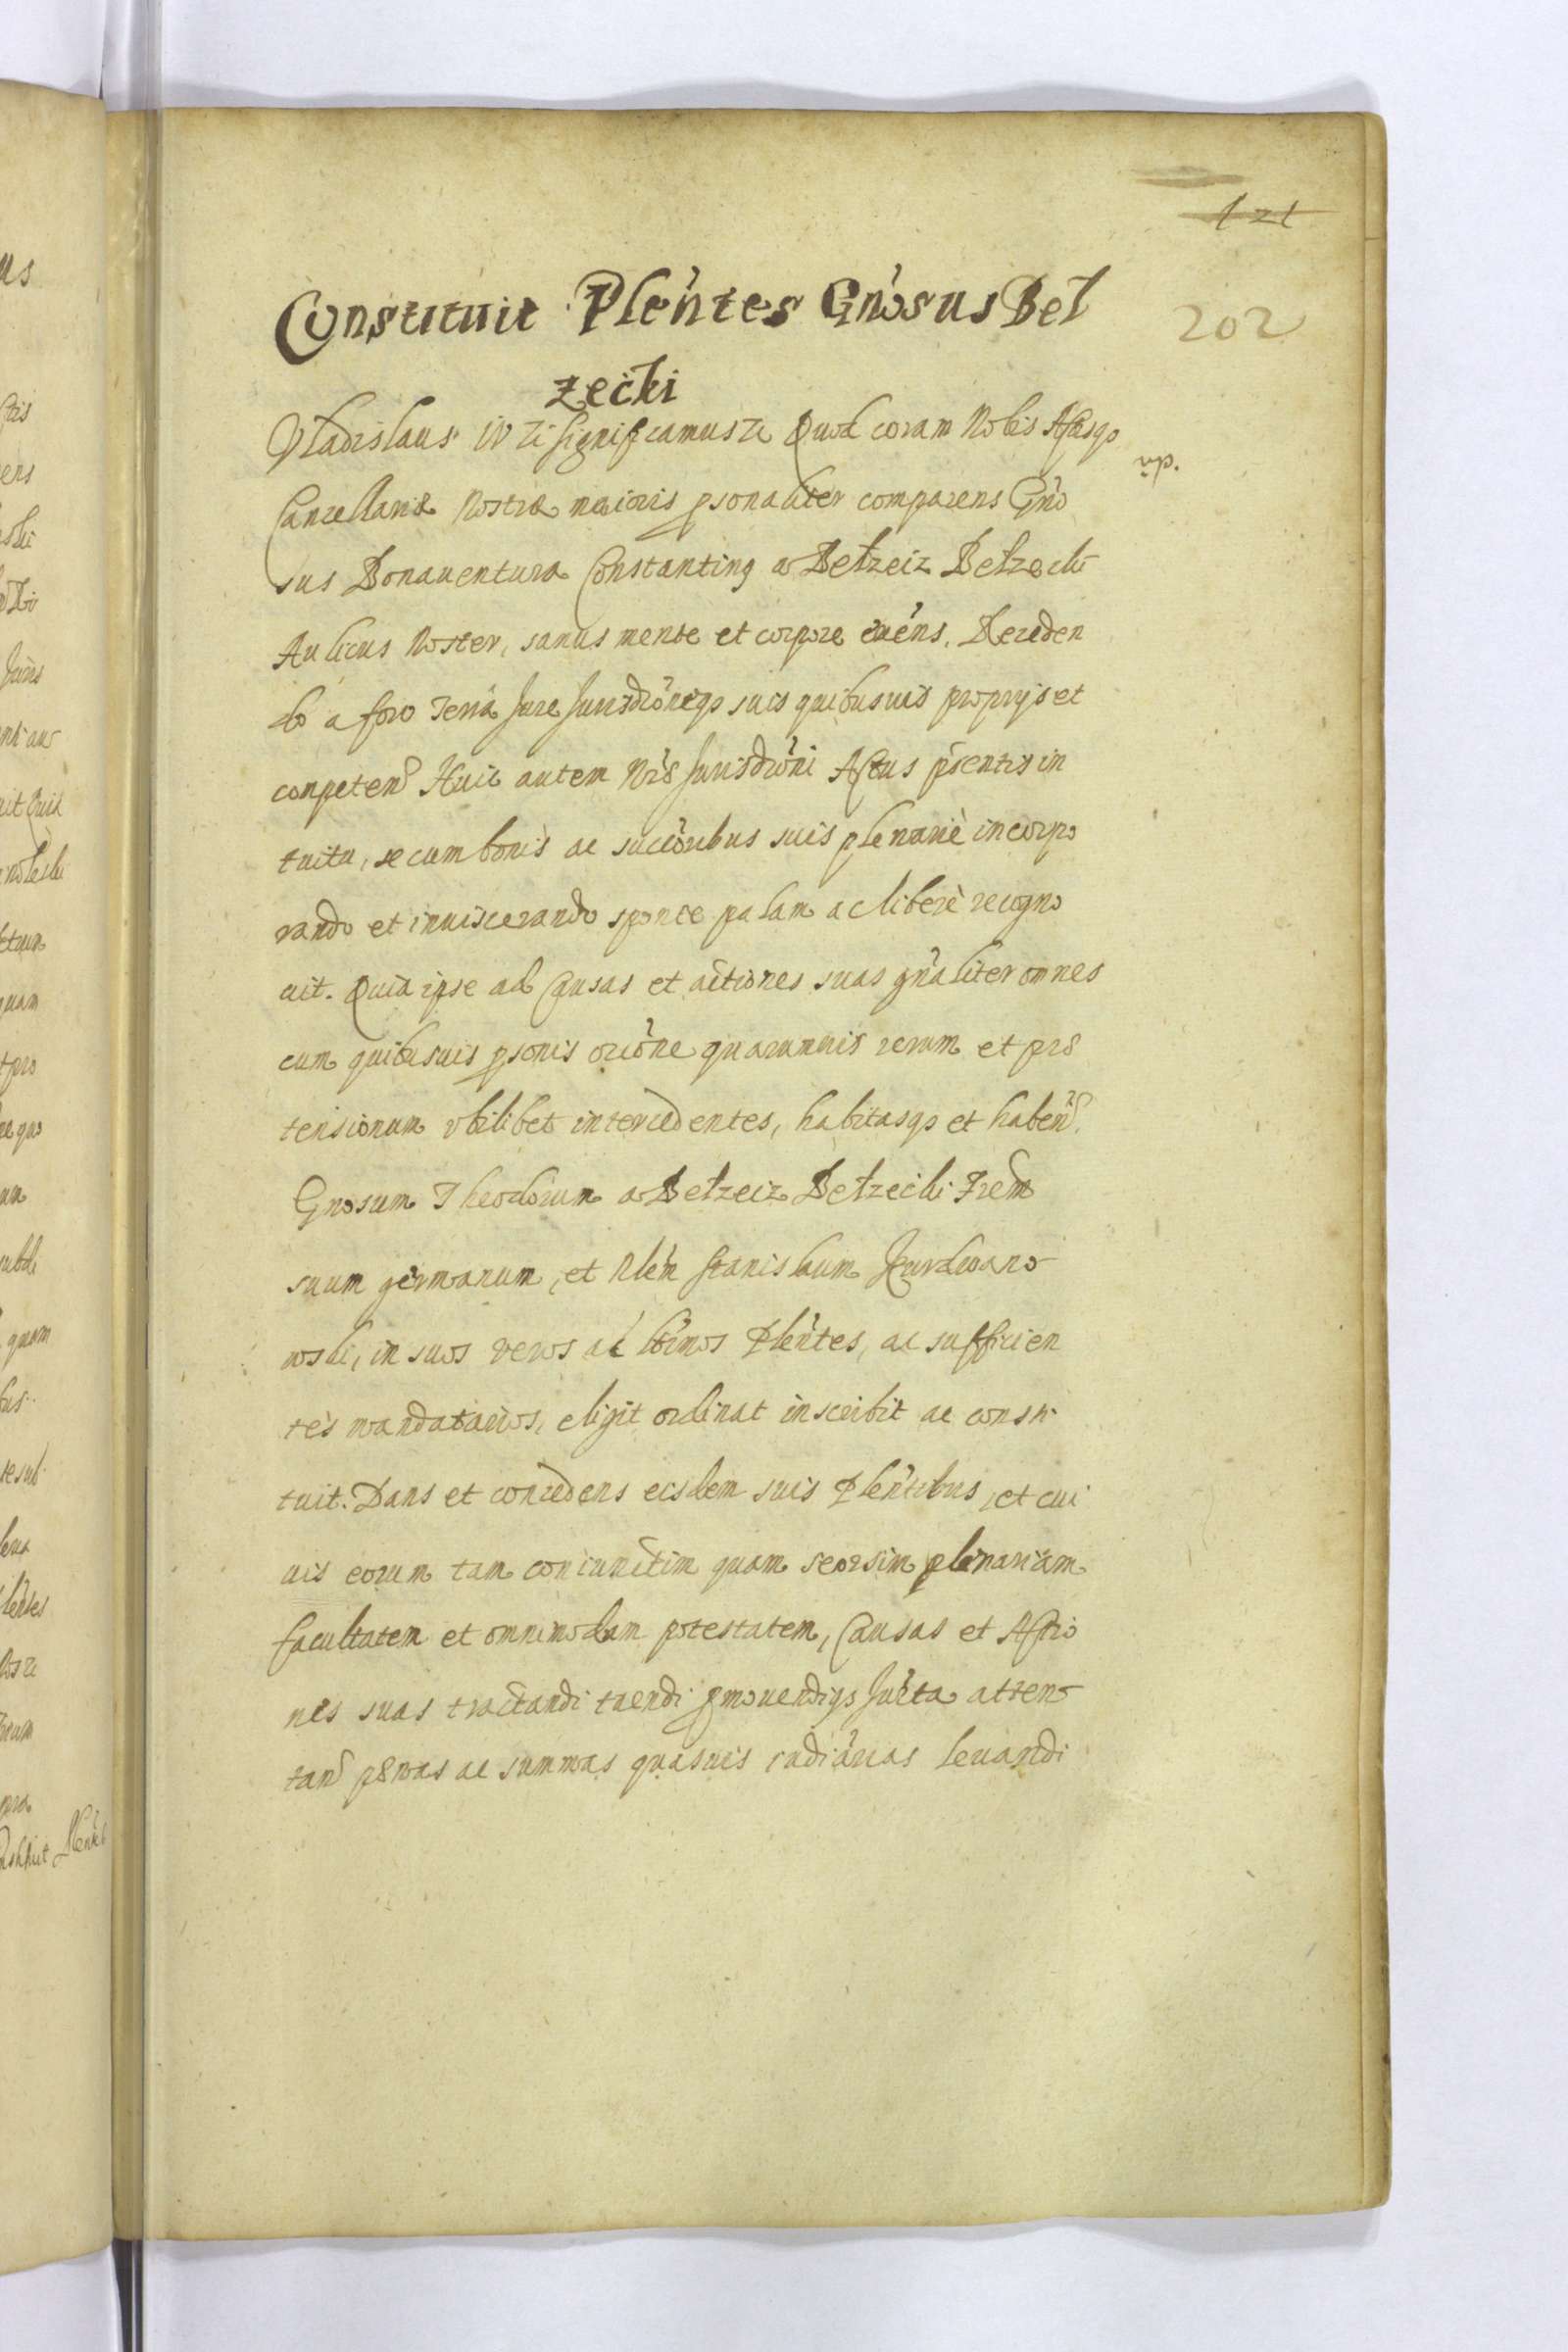 121
202
Constituit Plen̓tes Gn̓osus Beł
zecki
Vladislaus IV Zc significamus Zc Quod coram Nobis Actisq3
Cancellariæ Nostræ maioris psonaliter comparens Gn̓o
sus Bonauentura Constantinꝯ a Bełzeiz Bełzecki
Aulicus Noster, sanus mente et corpore exn̓s. Receden
do a foro Terrã Jure Jurisdio̓neq3 suis quibusuis proprijs et
competen̓ Huic autem Nræ̓ Jurisdio̓ni Actus pn̓tis in
tuitu, se cum bonis ac succo̓ribus suis plenariè incorpo
rando et inuiscerando sponte palam ac liberè recogno
uit. Quia ipse ad Causas et actiones suas gn̓aliter omnes
cum quibusuis psonis occo̓ne quarumuis rerum et præ
tensionum vbilibet intercedentes, habitasq3 et haben̓.
Gnosum Theodorum a Bełzeiz Bełzecki Frem̓
suum germanum, et Nlem̓ Stanislaum Kurdwano
wski, in suos veros ac ltt̓imos Plen̓tes, ac sufficien
tes mandatarios, eligit ordinat inscribit ac consti
tuit. Dans et concedens eisdem suis Plen̓tibus, et cui
uis eorum tam coniunctim quam seorsim plenariam
facultatem et omnimodam potestatem, Causas et Actio
nes suas tractandi tuendi pmouendiq3 Jur̓ta atten
tan̓ pænas ac summas quasuis iudiãrias leuandi